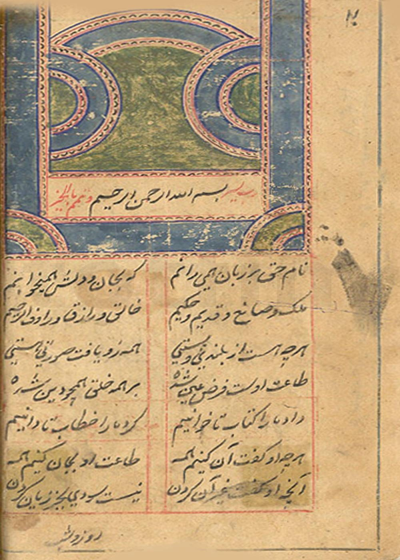 رب یسر بسم الله الرحمن الرحیم وتمم بالخیر
نام حق بر زبان همی رانم که بجان و دلش همیخوانم
ملک و صانع و قدیم و حکیم خالق و رازق و رؤف و رحیم
هرچه هست از بلندی و پستی همه زو یافت صورت هستی
طاعت اوست فرض عین شده بر همه خلق همچو دین شده
داد ما را کتاب تا خوانیم کرد ما را خطاب تا دانیم
هرچه او گفت آن کنیم همه طاعت او بجان کنیم همه
آنچه او گفت غیر آن کردن نیست سودی بجز زیان کردن
روز و شب